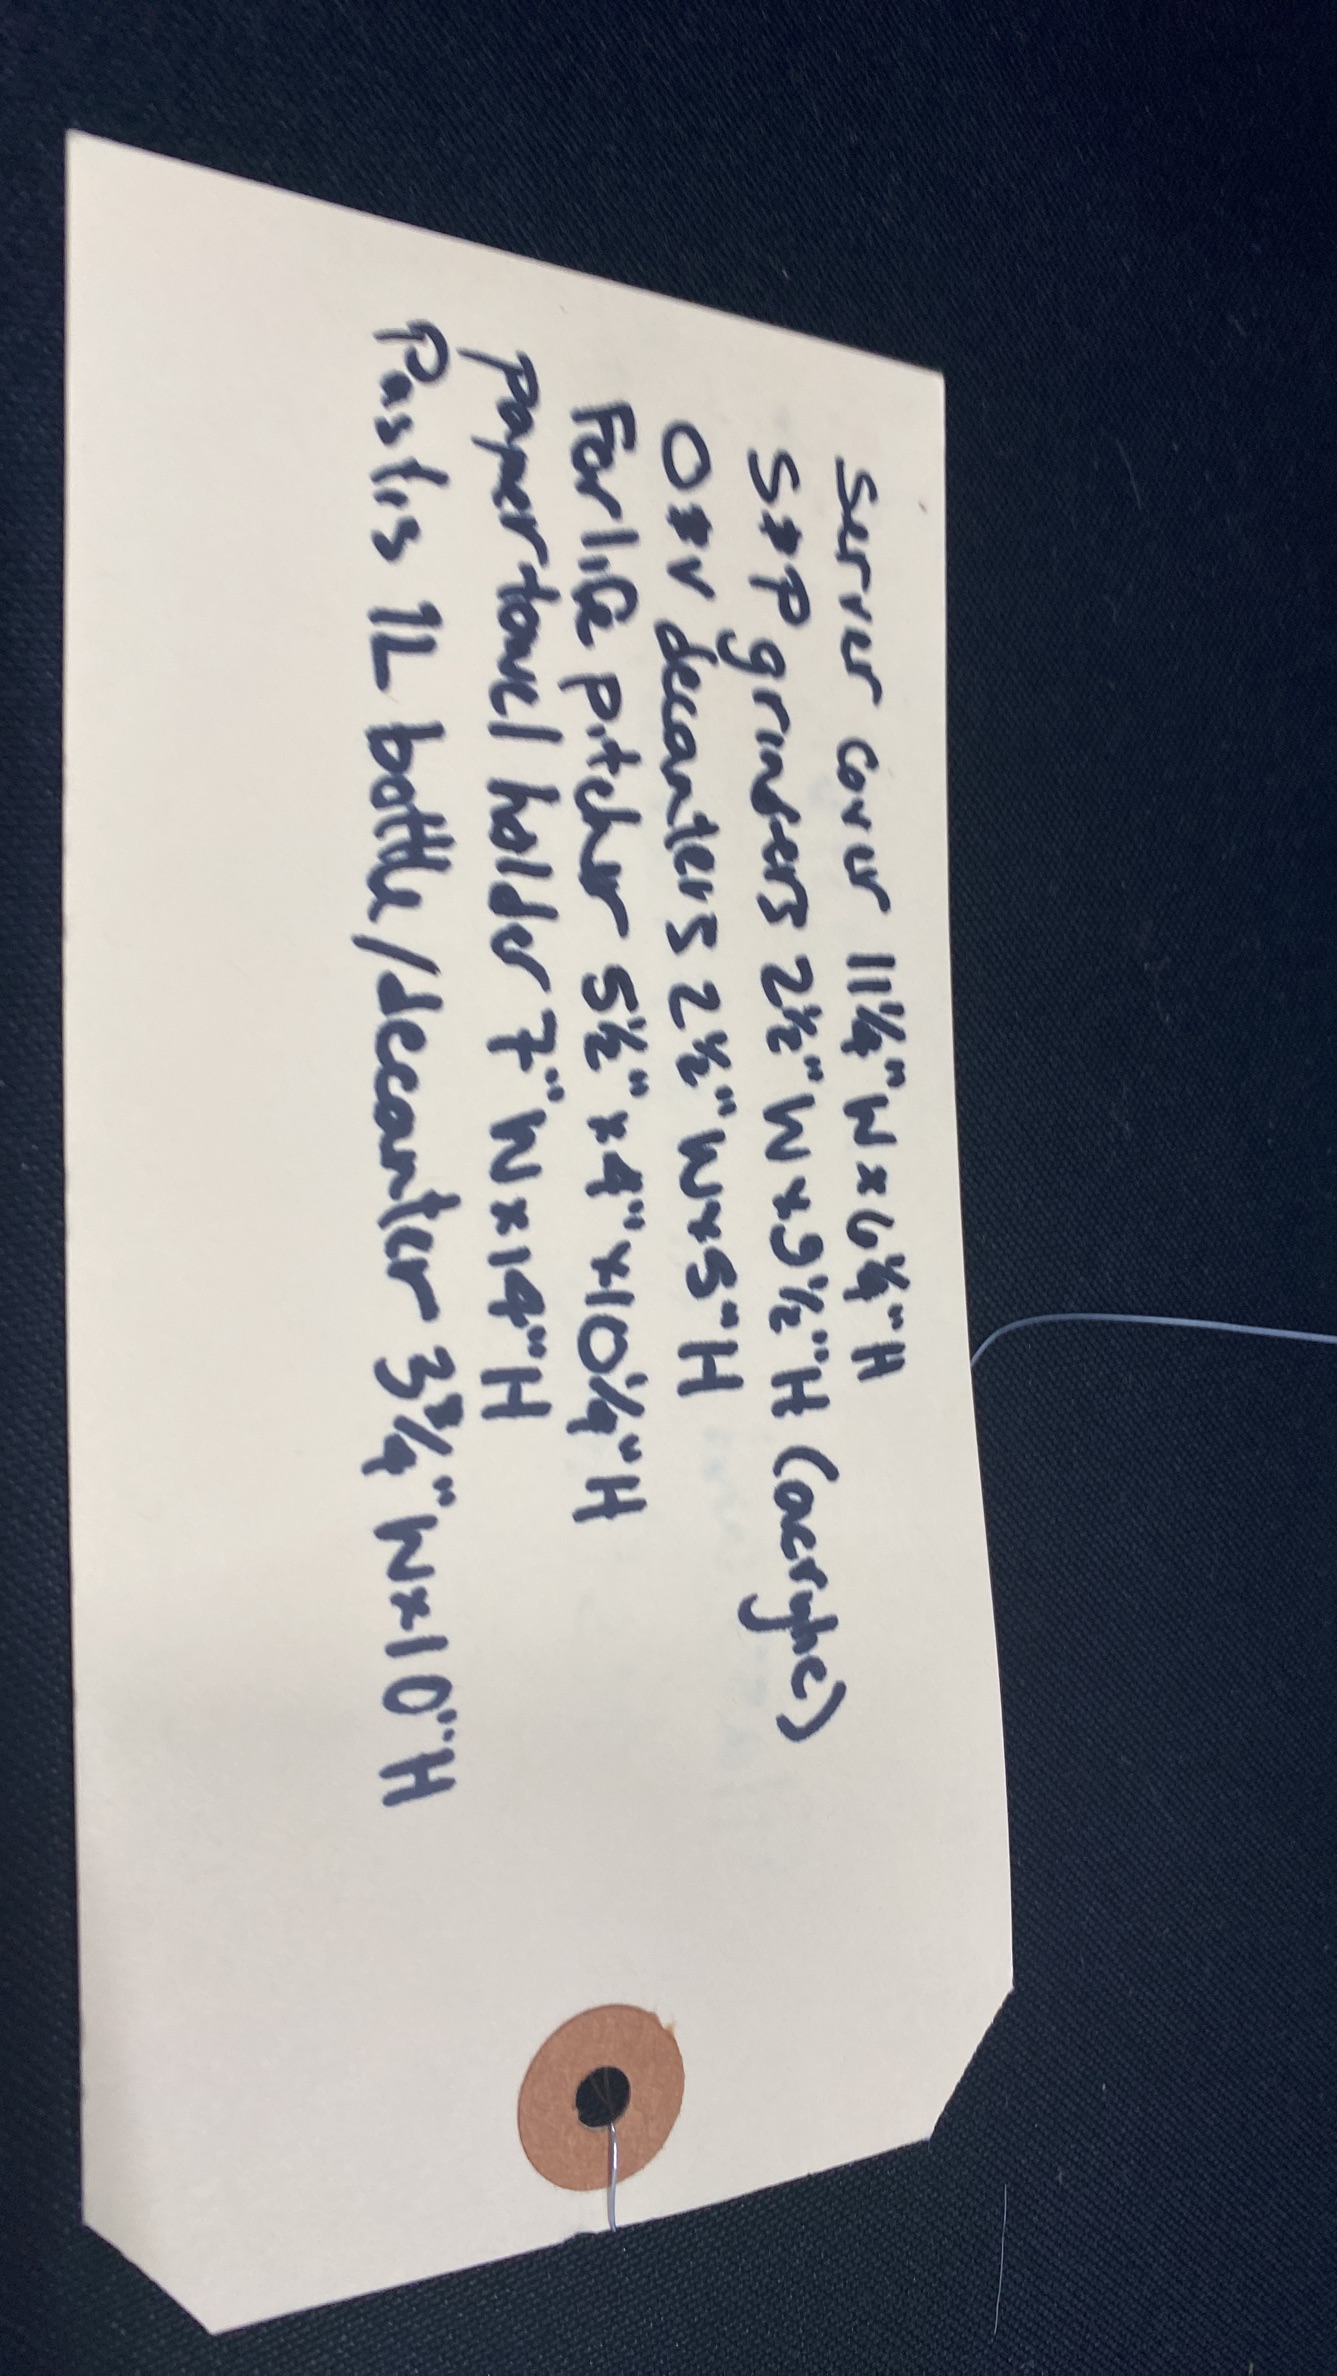 Server Cover 11¼" W x 6¼" H
S+P grinders 2½" W x 9½" H (acrylic)
O+V decanters 2½" W x 5" H
Forlife pitcher 5½" x 4" x 10¼" H
Paper towel holder 7" W x 14" H
Pastis 1L bottle/decanter 3¾" W x 10" H